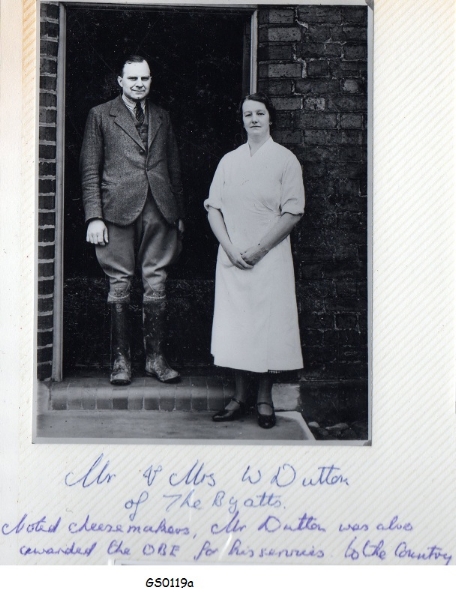 Mr & Mrs W Dutton
of The Byatts.
Noted cheesemakers, Mr Dutton was also
awarded the OBE for his services to the Country
GS0119a